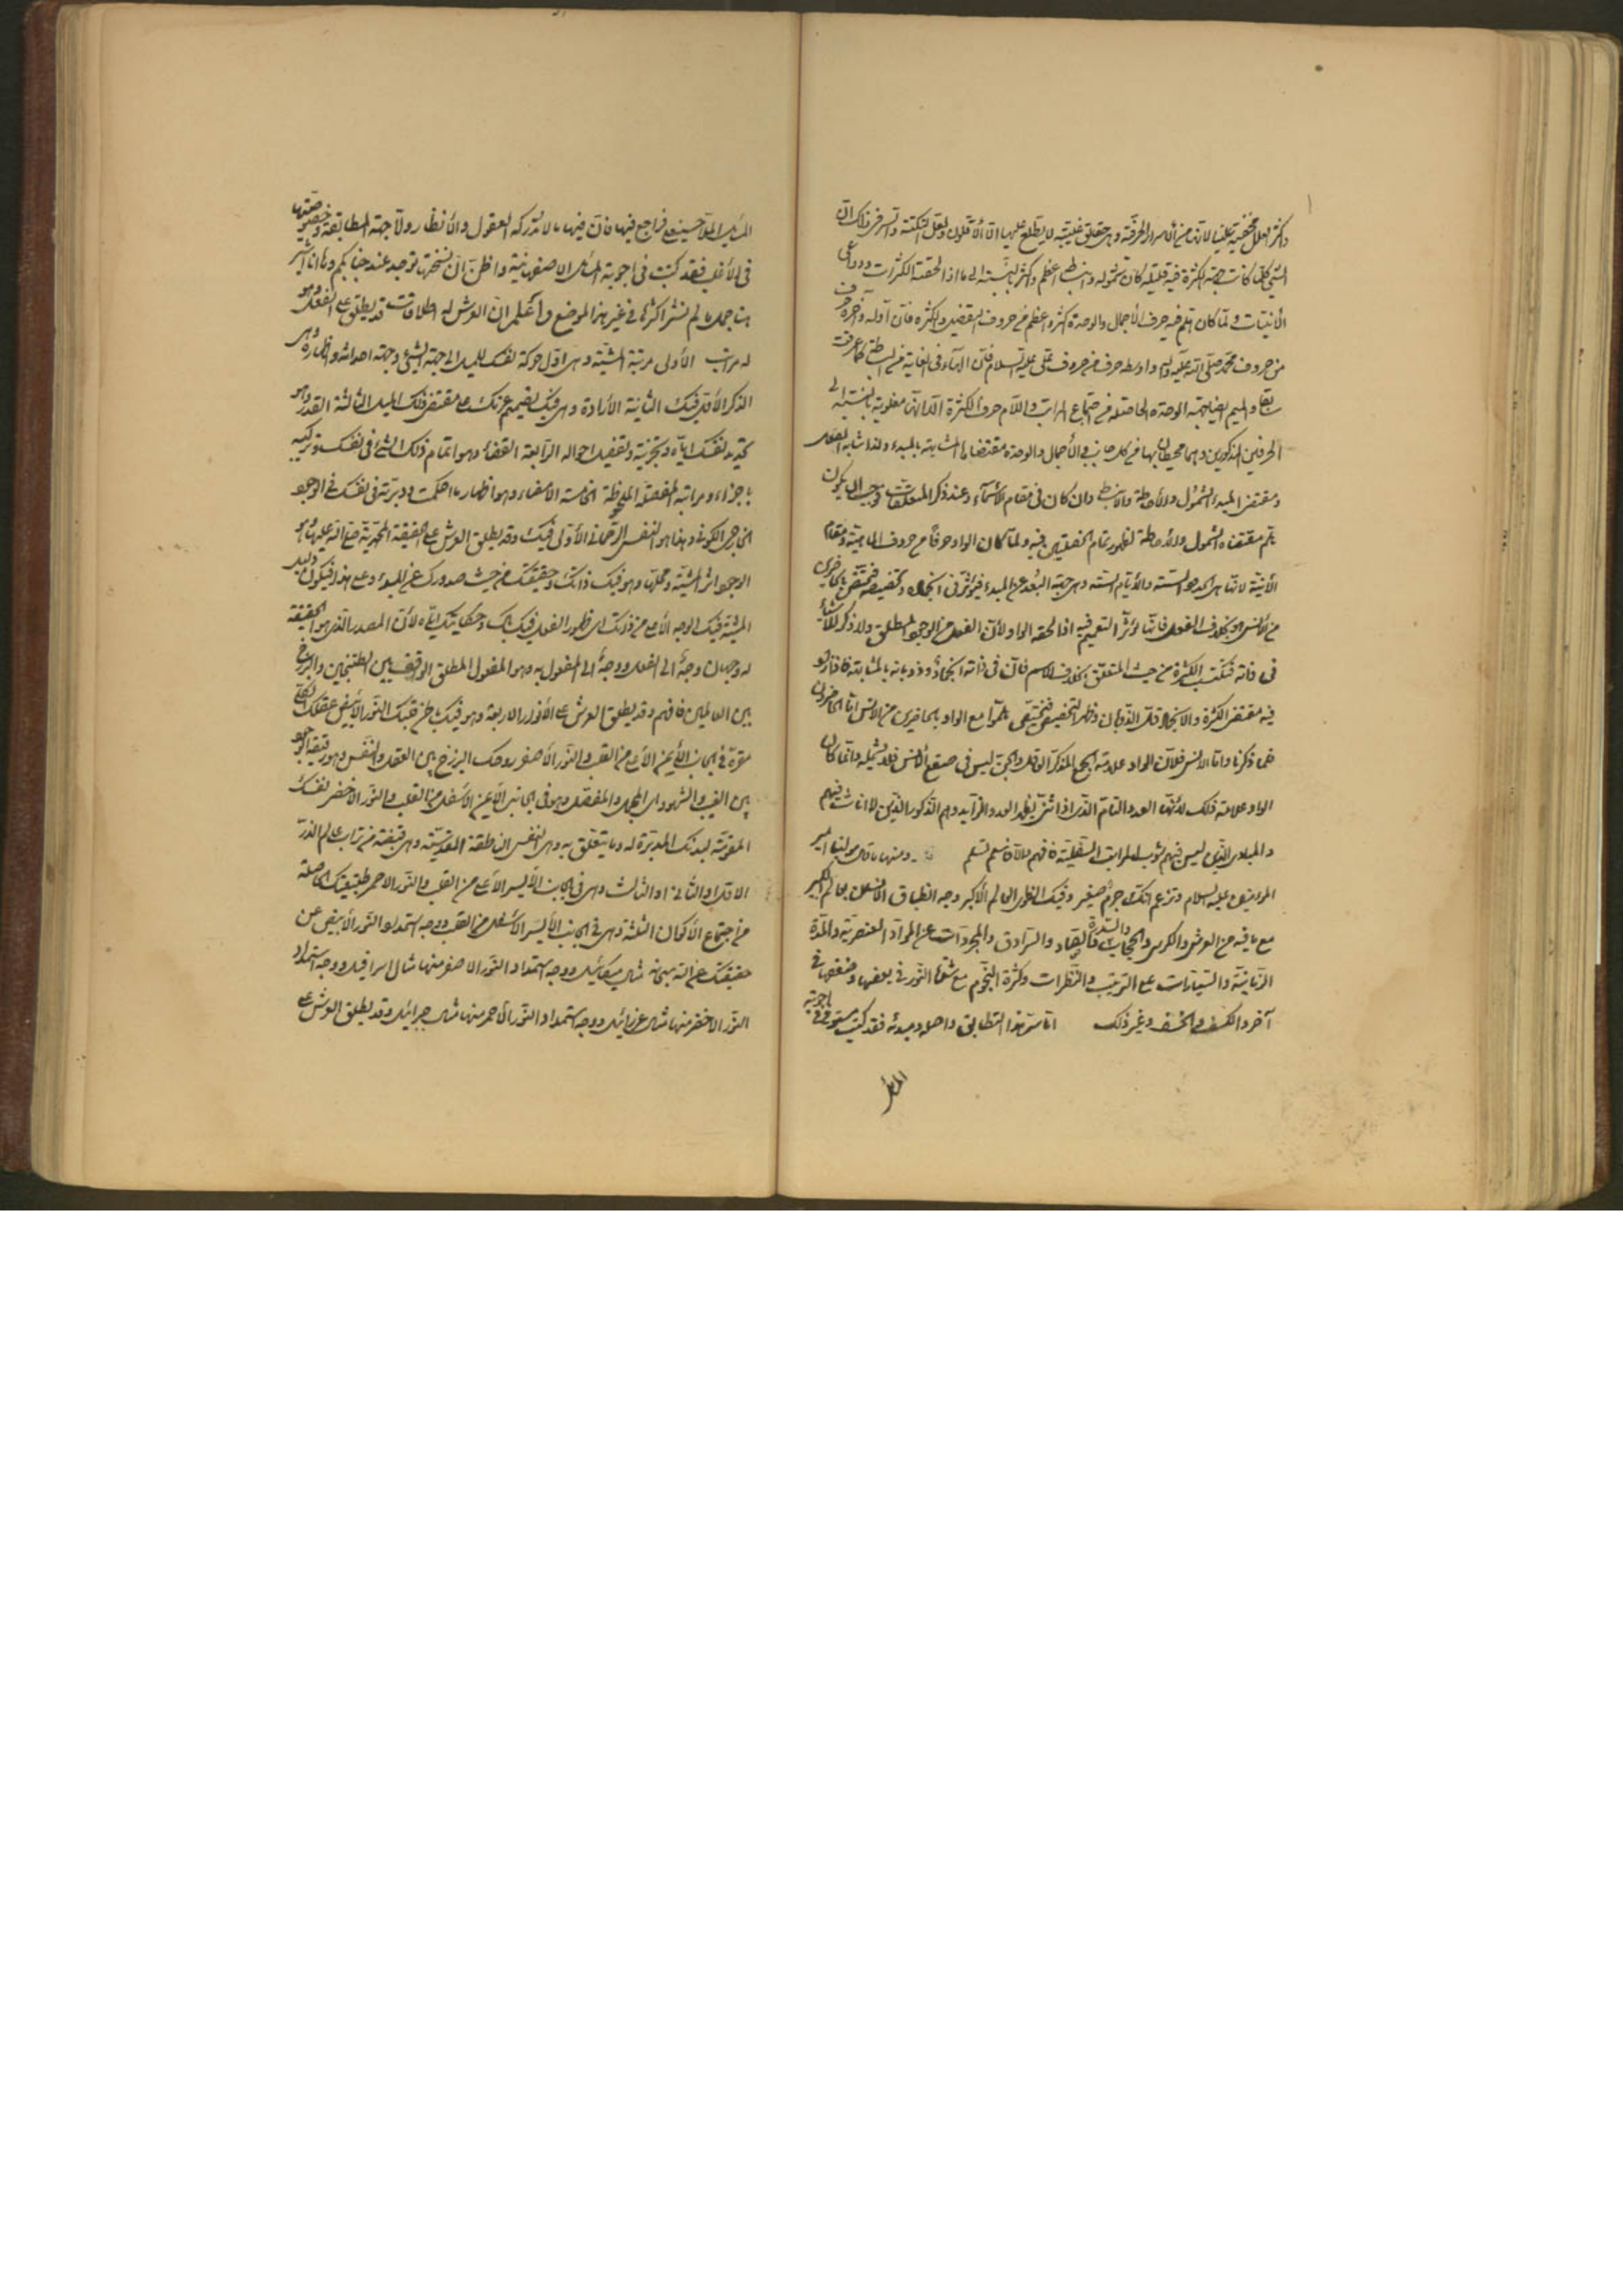 واكثر العلل مخفية علينا لانها من الاسرار الحرفية وهي حقايق غيبية لا يطلع عليها الا الاقلون ولعل النكتة والسر في ذلك ان
الشيء كلما كانت جهة الكثرة فيه قليلة كان شموله وانبساطه اعظم واكثر بالنسبة الى ما اذا لحقته الكثرات ودواعي
الانيات ولما كان قلم فيه حرف الاجمال والوحدة اكثر واعظم من حروف التفصيل والكثرة فان اوله وآخره حرف
من حروف محمد صلى الله عليه وآله واوسطه حرف من حروف علي عليه السلام فان الهاء في الغاية من البساطة كما عرفت
سابقا والميم ايضا جهة الوحدة الحاصلة من اجتماع المراتب واللام حرف الكثرة الا انها مغلوبة بالنسبة الى
الحرفين المذكورين وهما محيطان بها من كل جانب والاجمال والوحدة مقتضاها المشابهة بالمبدء ولذا شابه الفعل
ومقتضى المبدء الشمول والاحاطة والانبساط وان كان في مقام الاسماء وعند ذكر المتعلقات وجب ان يكون
يتم مقتضاه الشمول والاحاطة لظهور تمام الخصلتين فيه ولما كان الواو حرفا من حروف الماهية ومقام
الانية لانها هي الحدود الستة والايام الستة وهي جهة البعد عن المبدء فيؤثر في انجماده وتخصيصه فتختص بالحاضرين
من الانس بخلاف الفعل فانها لا تؤثر التعميم فيه اذا لحقه الواو لان الفعل من الوجود المطلق ولا ذكر للاشياء
في ذاته فتكتسب الكثرة من حيث المتعلق بخلاف الاسم فان في ذاته انجماد وذوبانه بالمشابهة فاذا زاد
فيه مقتضى الكثرة والانجماد قلل الذوبان وظهر التخصيص فيختص هلموا مع الواو بالحاضرين من الانس اما الحاضرون
فلما ذكرنا واما الانس فلان الواو علامة الجمع المذكر العاقل والجن ليس في صقع الانس فلا يشمله وانما كان
الواو علامة ذلك لانها العدد التام الذي اذا ثنى يظهر العدد الزايد وهم الذكور الذين لا اناث فيهم
والمبادي الذين ليس فيهم شوب المراتب السفلية فافهم والا فاسلم تسلم ومنها ما قال مولينا امير
المؤمنين عليه السلام وتزعم انك جرم صغير وفيك انطوى العالم الاكبر وجه انطباق الانسان بعالم الكبير
مع ما فيه من العرش والكرسي والحجاب والسدرة والعماد والسرادق والمجردات عن المواد العنصرية والمدة
الزمانية والسيارات على الترتيب والنظرات وكثرة النجوم مع شدة النور في بعضها وضعفها في
آخر والكسف والخسف وغير ذلك اما سر هذا التطابق واصله ومبدئه فقد كتبت مستوفى في اجوبة
المسائل
المسائل الملا حسينعلي فراجع فيها فان فيها ما لا تدركه العقول والانظار ولا جهة المطابقة وخصوصيتها
في الاغلب فقد كتبت في اجوبة المسائل الاصفهانية واظن ان نسختها توجد عند جنابكم وها انا اشير
هنا جمل ما لم نشر اكثرها في غير هذا الموضع واعلم ان العرش له اطلاقات قد يطلق على الفعل وهو
له مراتب الاولى مرتبة المشية وهي اول حركة نفسك للميل الى جهة الشيء وجهة احداثه واظهاره وهي
الذكر الاول فيك الثانية الارادة وهي فيك تصميم عزمك على مقتضى ذلك الميل الثالثة القدر وهو
تحديد نفسك اياه وتجزئته وتفصيل احواله الرابعة القضاء وهو اتمام ذلك الشيء في نفسك وتركيبه
باجزاءه ومراتبه المفصلة الملحوظة الخامسة الامضاء وهو اظهار ما احكمت ودبرته في نفسك في الوجود
الخارجي الكوني وهذا هو النفس الرحماني الاولى فيك وقد يطلق العرش على الحقيقة المحمدية صلى الله عليها وهو
الوجود اثر المشية ومحلها وهو فيك ذاتك وحقيقتك من حيث صدورك عن المبدء وعلى هذا فيكون دليل
المشية فيك الوجه الاعلى من ذاتك اي ظهور الفعل فيك بك وحكايتك اياه لان المصدر الذي هو الحقيقة
له وجهان وجه الى الفعل ووجه الى المفعول به وهو المفعول المطلق الواقف بين الطتنجين والبرزخ
بين العالمين فافهم وقد يطلق العرش على الانوار الاربعة وهو فيك باطن قلبك النور الابيض عقلك الكلي
مقره في الجانب الايمن الاعلى من القلب والنور الاصفر روحك البرزخ بين العقل والنفس وهو رقيقة الوجود
بين الغيب والشهود اي المجمل والمفصل وهو في الجانب الايمن الاسفل من القلب والنور الاخضر نفسك
المقومة لبدنك المدبرة له وما يتعلق به وهي النفس الناطقة القدسية وهي قبضة من تراب عالم الذر
الاول او الثاني او الثالث وهي في الجانب الايسر الاعلى من القلب والنور الاحمر طبيعتك الحاصلة
من اجتماع الاكوان الثلثة وهي في الجانب الايسر الاسفل من القلب ووجه استمداد النور الابيض عن
حقيقتك عن الله سبحانه مثال ميكائيل ووجه استمداد النور الاصفر منها مثال اسرافيل ووجه استمداد
النور الاخضر منها مثال عزرائيل ووجه استمداد النور الاحمر منها مثال جبرائيل وقد يطلق العرش على